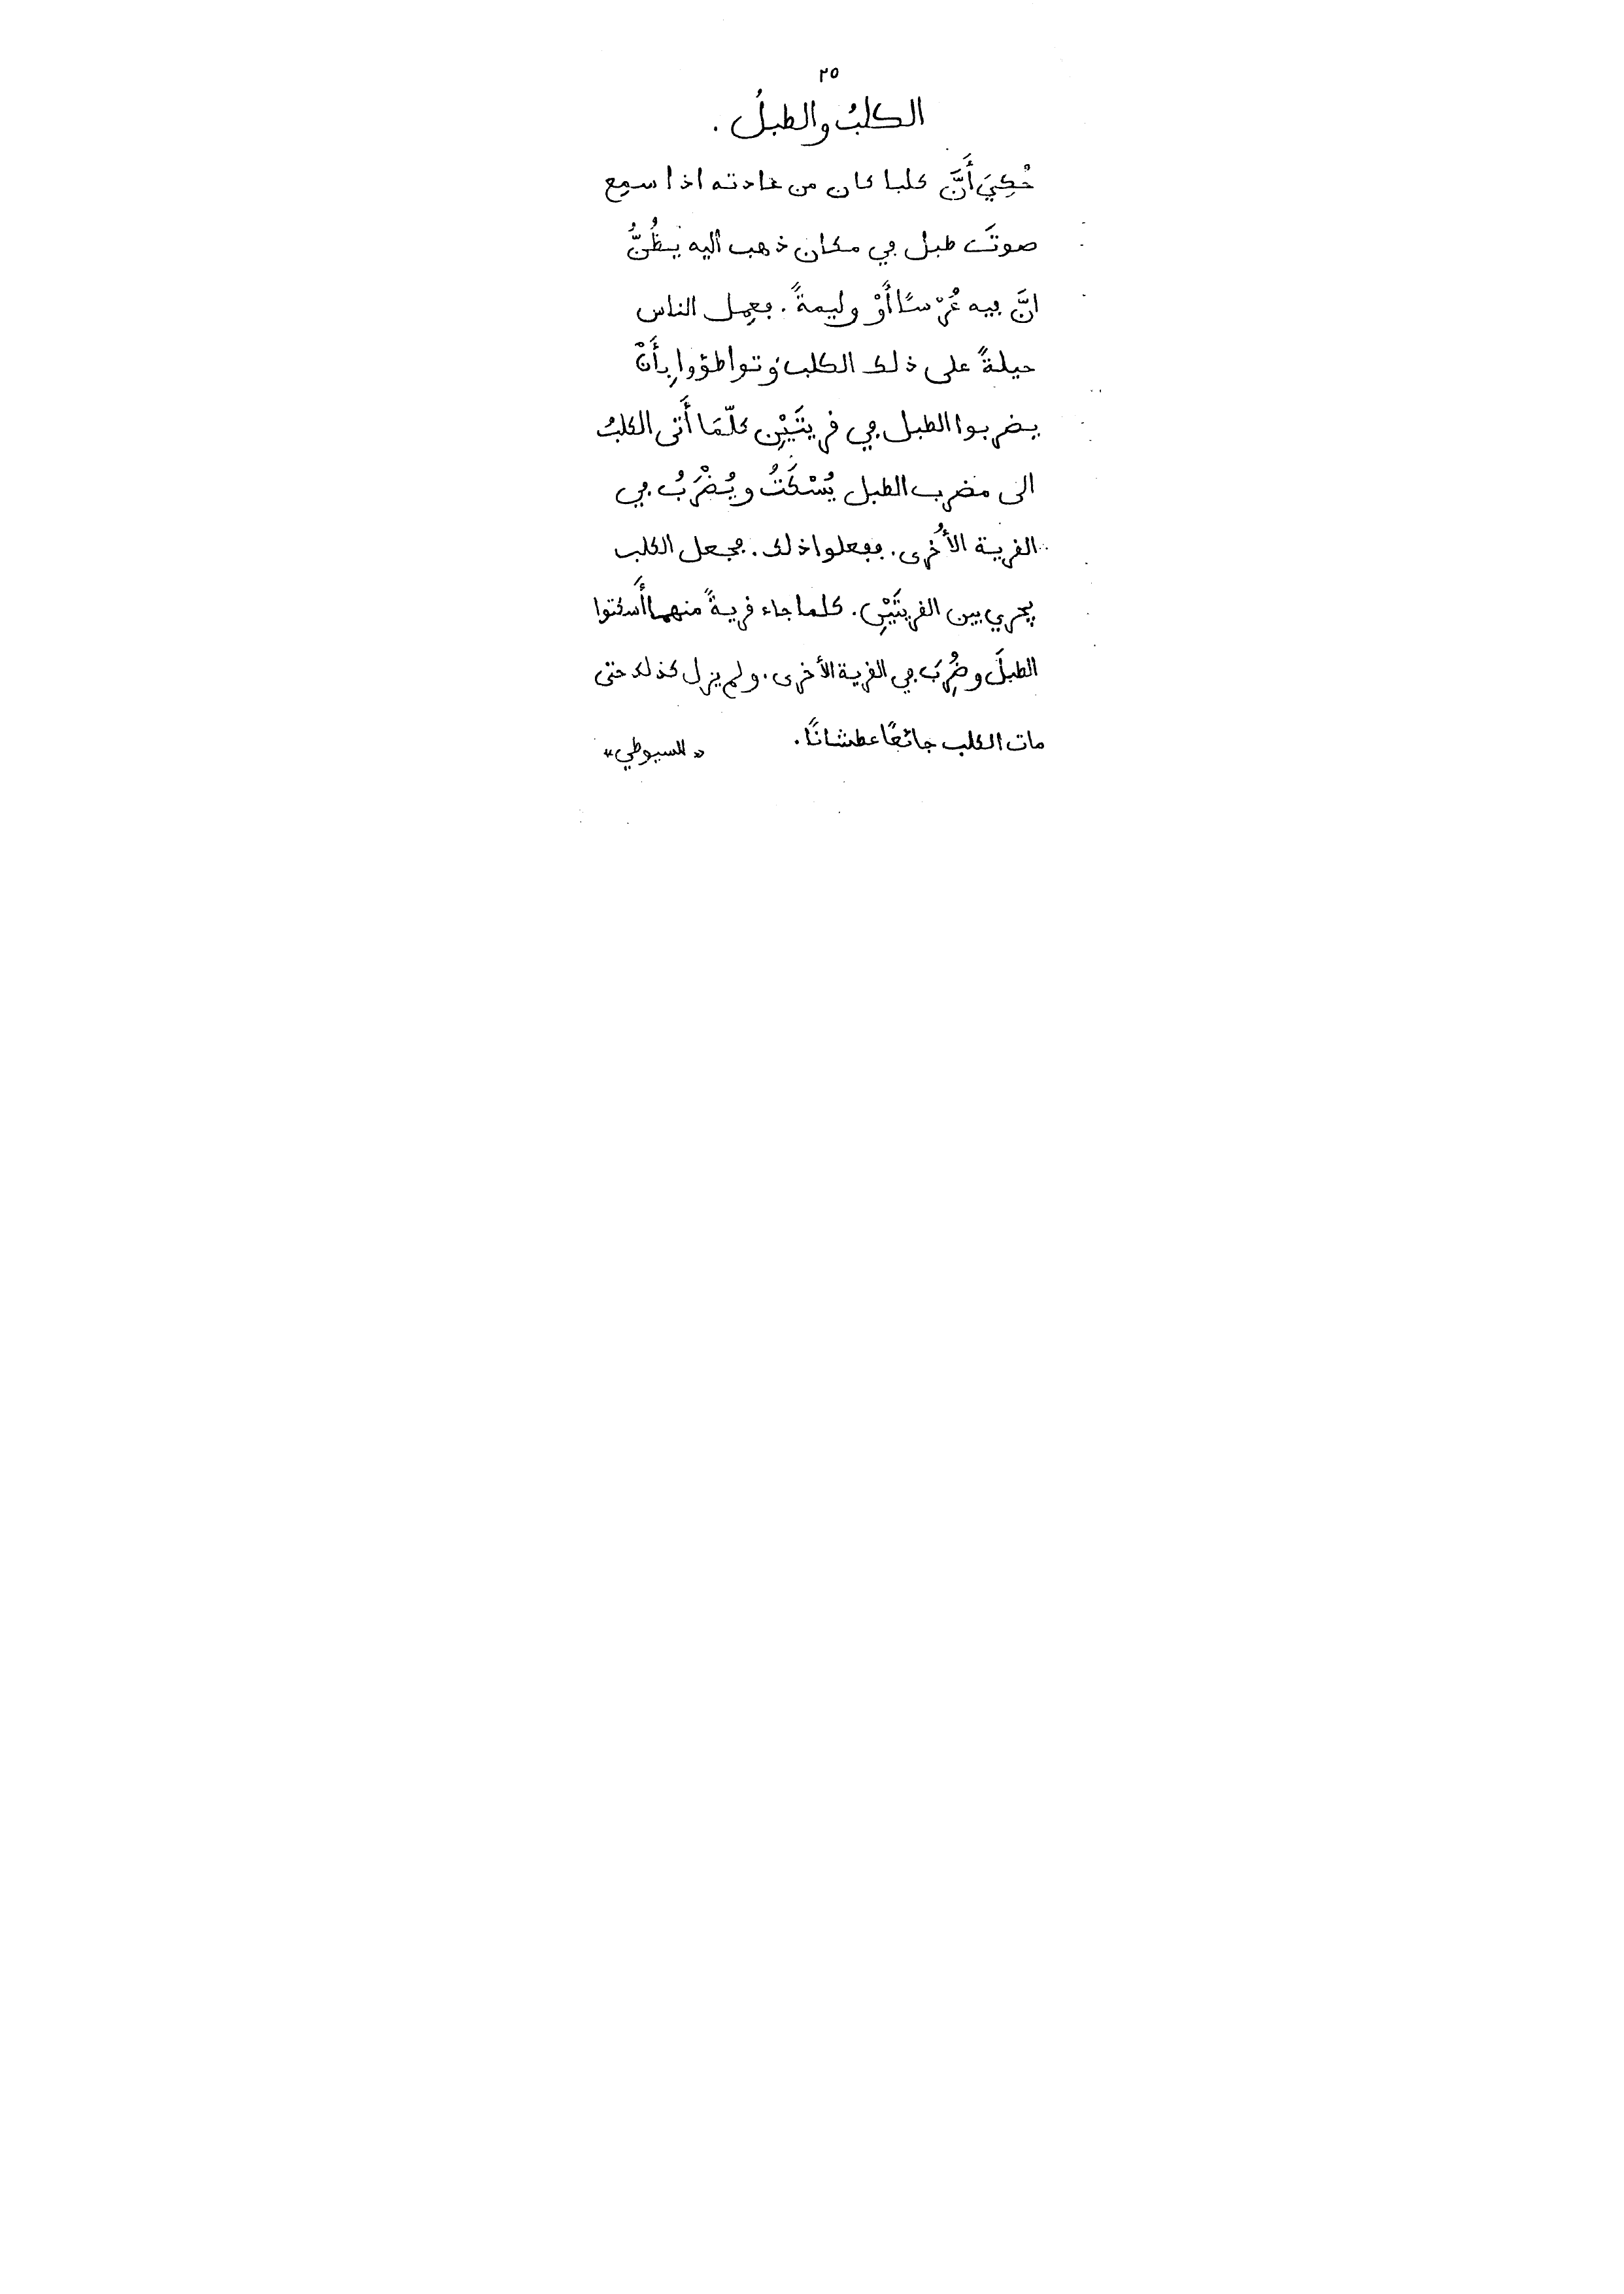 ٢٥
الكلبُ والطبلُ .
حُكِيَ أَنَّ كلبا كان من عادته اذا سمِع
صوتَ طبل في مكان ذهب اليه يظُنُّ
انَّ فيه عُرْسًا أَوْ وليمةً . فعمِل الناس
حيلةً على ذلك الكلب وَتواطؤوا بِأَنْ
يضربوا الطبل في قريتَيْنِ كلّمَا أَتى الكلبُ
الى مضرب الطبل يُسْكَتُ ويُضْرَبُ في
القرية الأُخرى . ففعلوا ذلك . فجعل الكلب
يجري بين القريتَيْنِ . كلما جاء قريةً منهما أَسكتوا
الطبلَ وضُرِبَ في القرية الأخرى . ولم يزل كذلك حتى
مات الكلب جائعًا عطشانًا .
« للسيوطي »